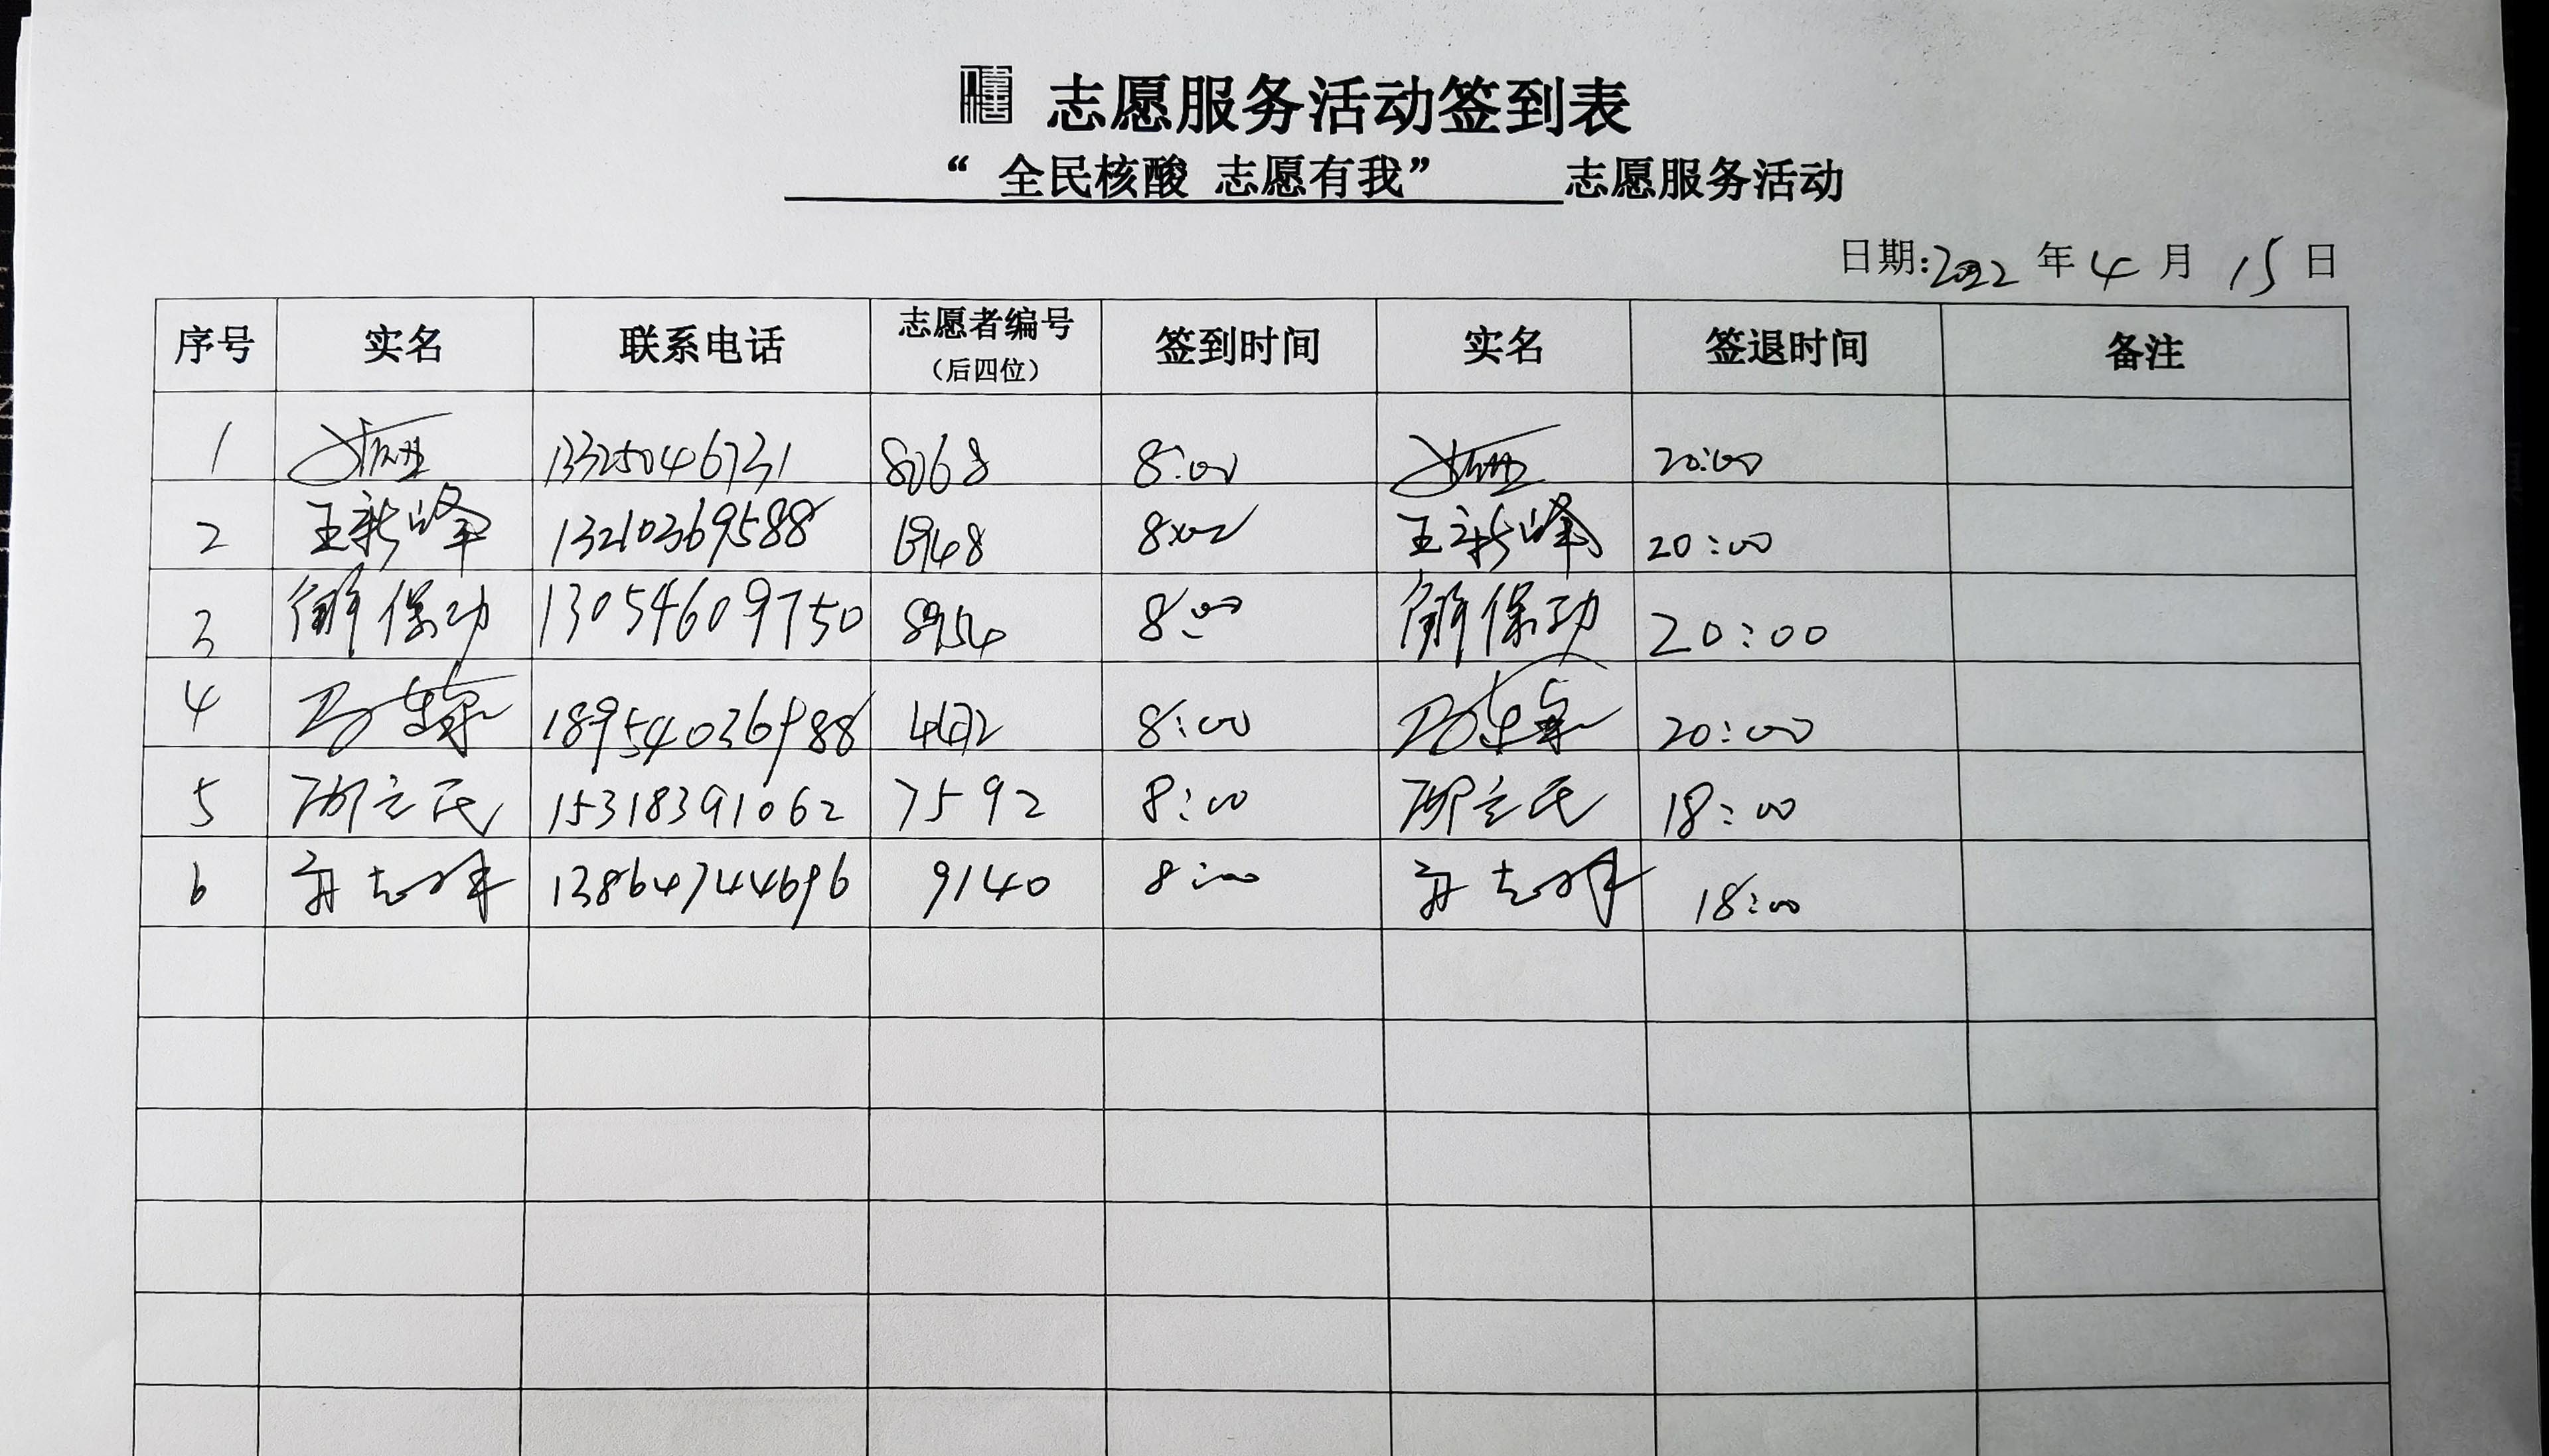 志愿服务活动签到表
“ 全民核酸 志愿有我” 志愿服务活动
日期:2022 年 4 月 15 日
序号 实名 联系电话 志愿者编号（后四位） 签到时间 实名 签退时间 备注
1 13325046731 8068 8:00 20:00
2 王新峰 13210369588 8:00 王新峰 20:00
3 解保功 13054609750 8954 8:00 解保功 20:00
4 18954036988 8:00 20:00
5 邵立民 15318391062 7592 8:00 邵立民 18:00
6 13864744696 9140 8:00 18:00